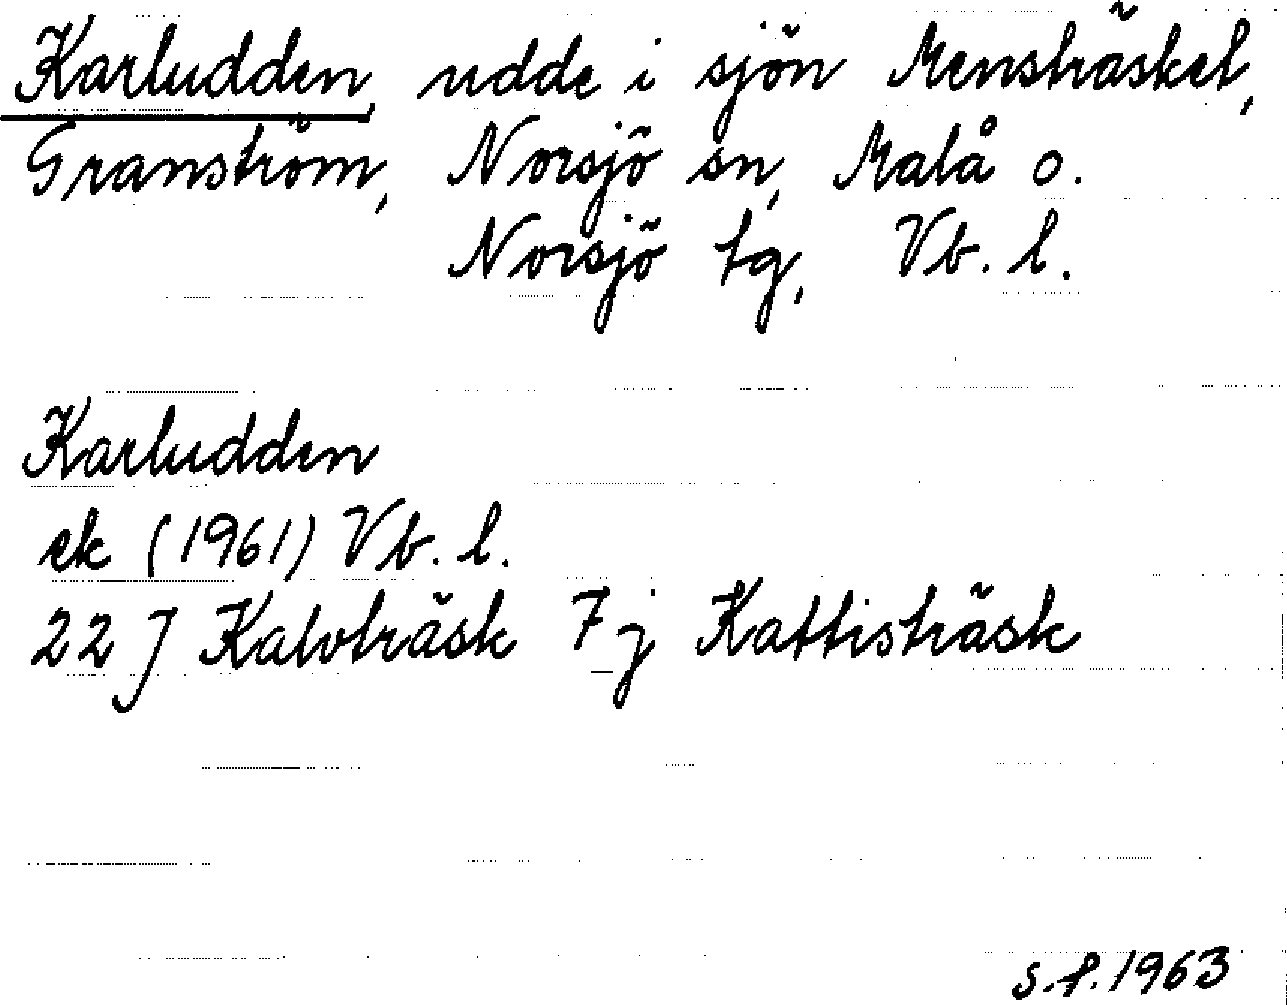 Karludden, udde i sjön Mensträsket,
Granström, Norsjö sn, Malå o.
Norsjö tg, Vb. l.
Karludden
ek (1961) Vb. l.
22 J Kalvträsk 7 j Kattisträsk
s.f. 1963